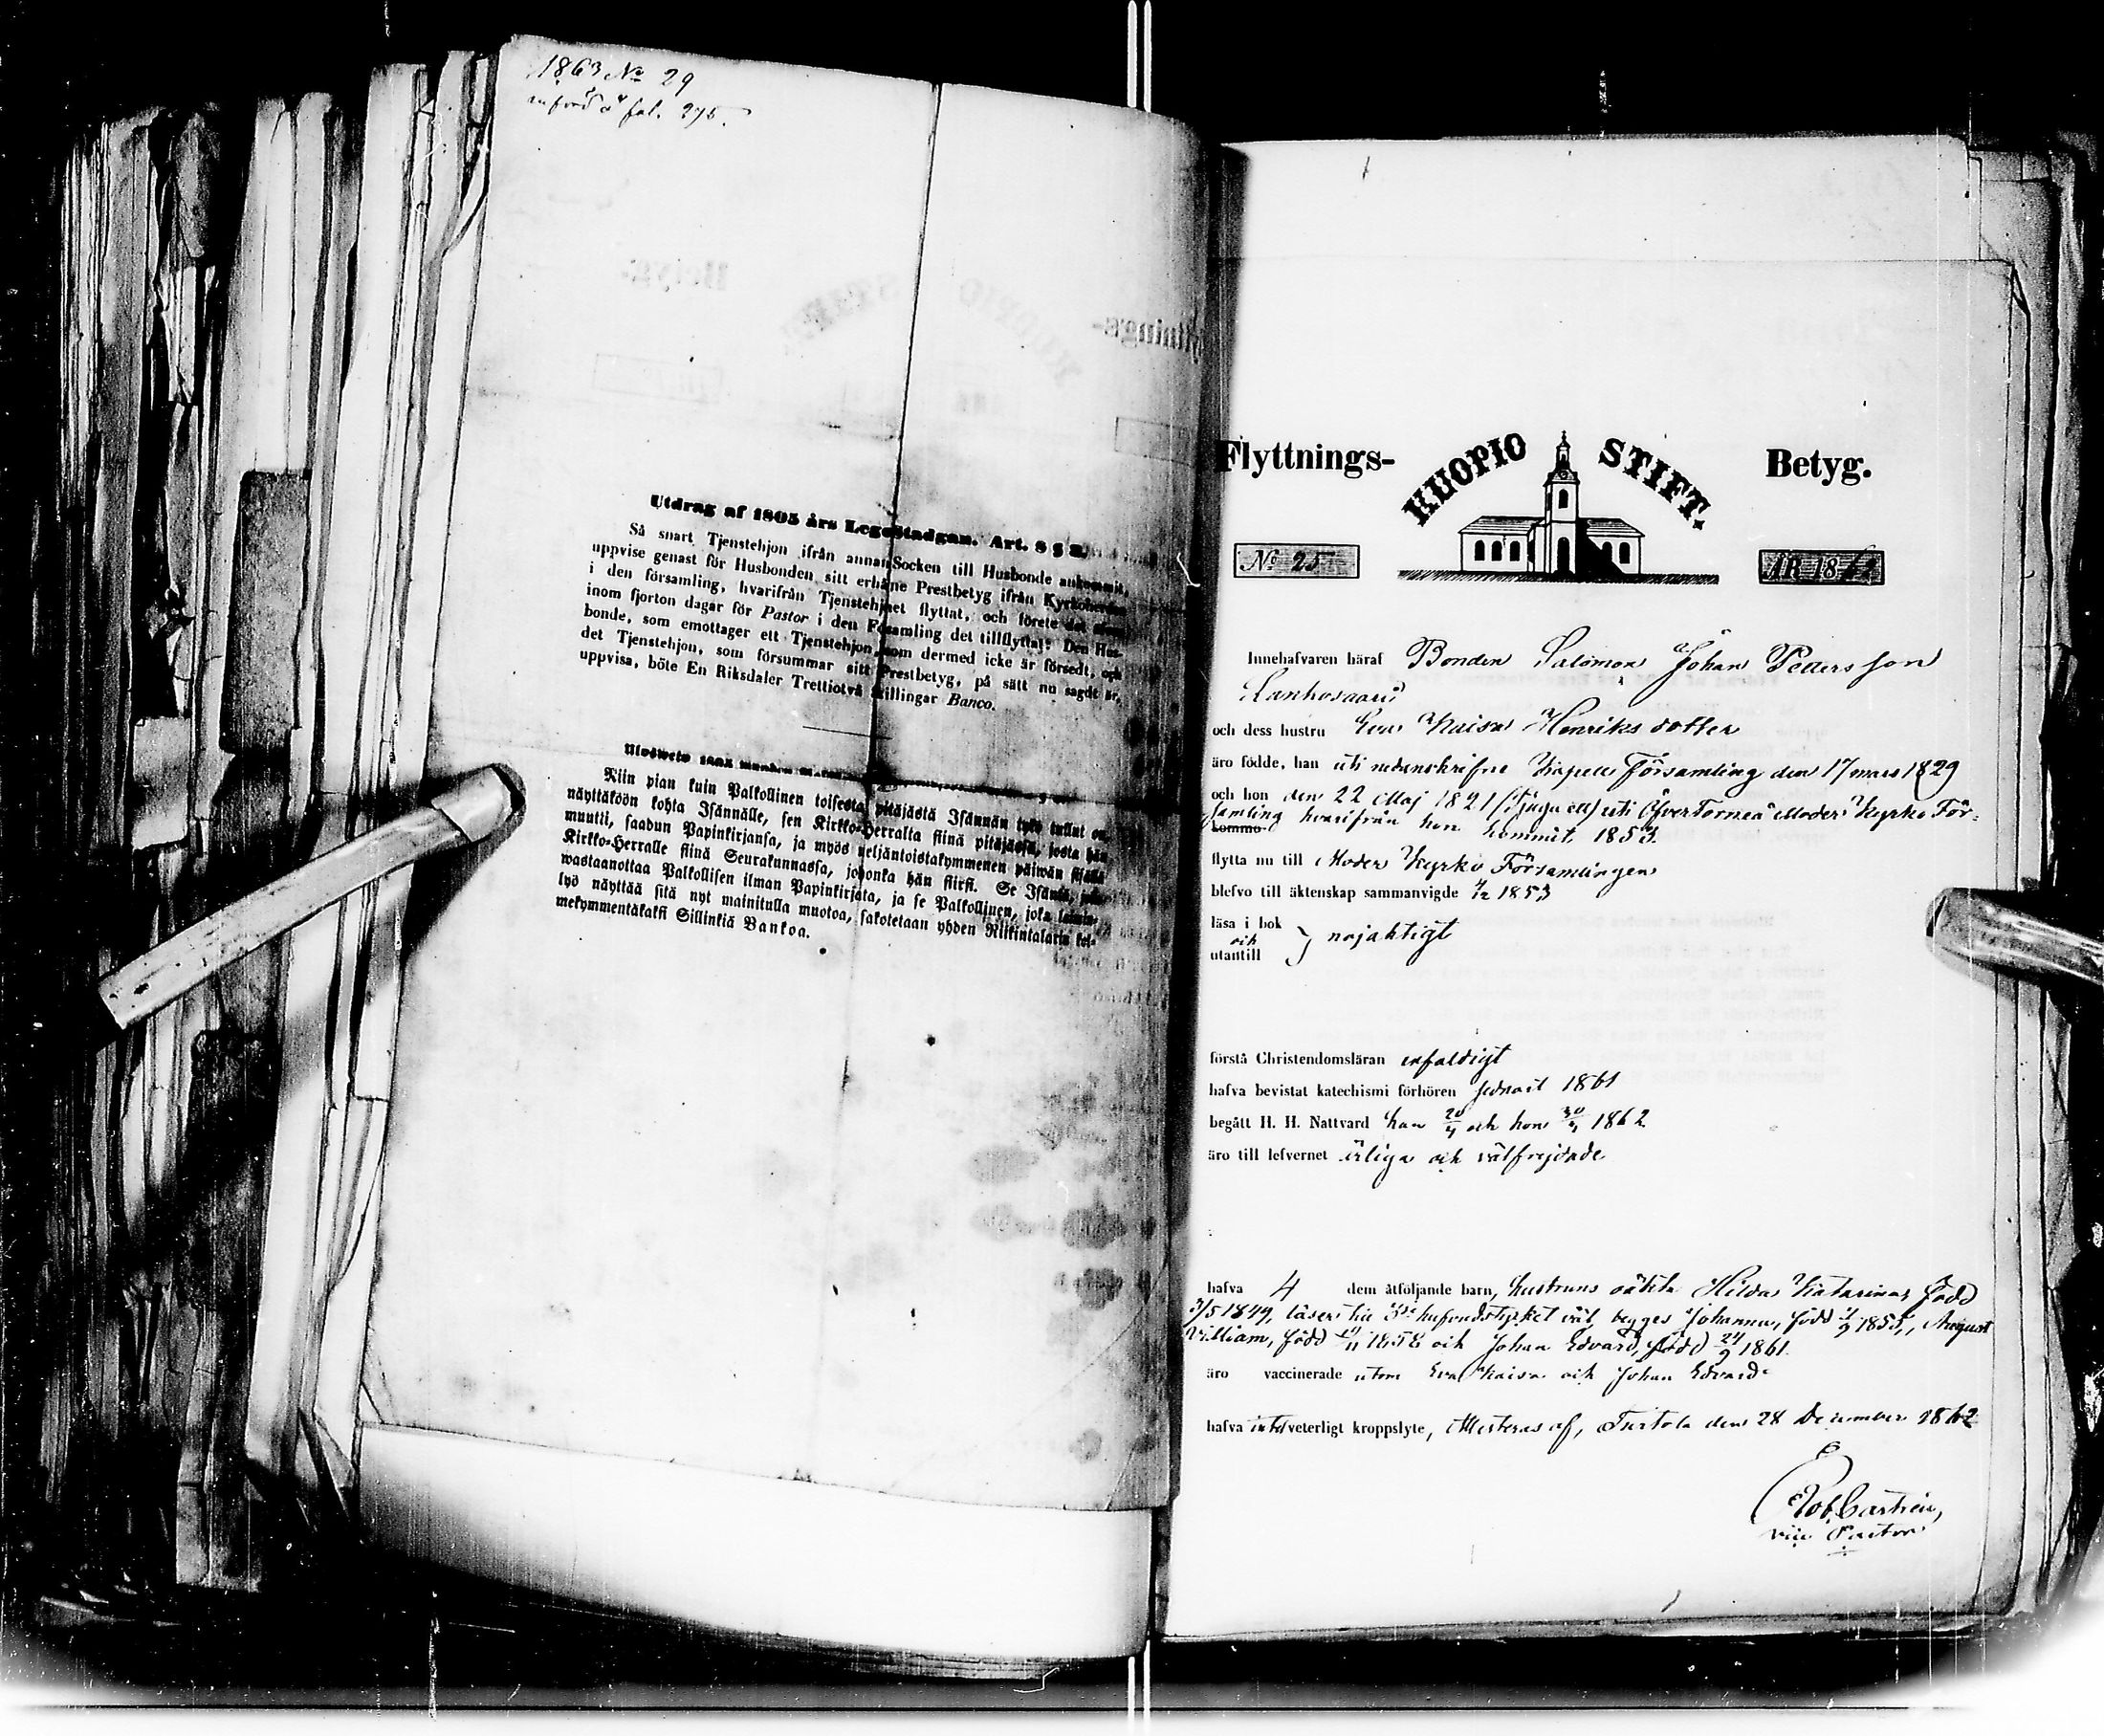 1863 No 29
införd å fol. 275.
Utdrag af 1805 års Legostadgan. Art. 8 § 2.
Så snart Tjenstehjon ifrån annan Socken till Husbonde ankommit,
uppvise genast för Husbonden sitt erhållne Prestbetyg ifrån Kyrkoherden
i den församling, hvarifrån Tjenstehjonet flyttat, och förete det
inom fjorton dagar för Pastor i den Församling det tillflyttat: Den Hus-
bonde, som emottager ett Tjenstehjon, som dermed icke är försedt, och
det Tjenstehjon, som försummar sitt Prestbetyg, på sätt nu sagdt är,
uppvisa, böte En Riksdaler Trettiotvå skillingar Banco.
Niin pian kuin Palkollinen toisesta pitäjästä Isännän tykö tullut on,
näyttäköön kohta Isännälle, sen Kirkko-Herralta siinä pitäjässä, josta hän
muutti, saadun Papinkirjansa, ja myös neljäntoistakymmenen päiwän sisällä
Kirkko-Herralle siinä Seurakunnassa, johonka hän siirsi. Se Isäntä, joka
wastaanottaa Palkollisen ilman Papinkirjata, ja se Palkollinen, joka laimin-
lyö näyttää sitä nyt mainitulla muotoa, sakotetaan yhden Riikintalarin kol-
mekymmentäkaksi Sillinkiä Bankoa.
Flyttnings- KUOPIO STIFT. Betyg.
No 25 ÅR 1862
Innehafvaren häraf Bonden Salomon Johan Petersson
Lanhosaari
och dess hustru Eva Kaisa Henriksdotter
äro födde, han uti nedanskrifne Kapell Församling den 17 mars 1829
och hon den 22 Maj 1821 (Tjuguett) uti Öfver Torneå Moder Kyrko För-
samling hvarifrån hon kommit 1853.
kommo
flytta nu till Moder Kyrko Församlingen
blefvo till äktenskap sammanvigde 4/2 1853
läsa i bok
och
utantill } nöjaktigt
förstå Christendomsläran enfaldigt
hafva bevistat katechismi förhören sednast 1861
begått H. H. Nattvard han 20/4 och hon 30/4 1862
äro till lefvernet ärliga och välfrejdade
hafva 4 dem åtföljande barn, hustruns oäkta Hilda Katarina, född
3/5 1849, läser tre hufvudstycket väl, begges Johanna, född 2/9 1855, August
William, född 10/11 1858 och Johan Edvard, född 24/9 1861.
äro vaccinerade utom Eva Kaisa och Johan Edvard.
hafva intet veterligt kroppslyte, Attesteras af, Turtola den 28 December 1862
Rob. Castrén,
vice Pastor